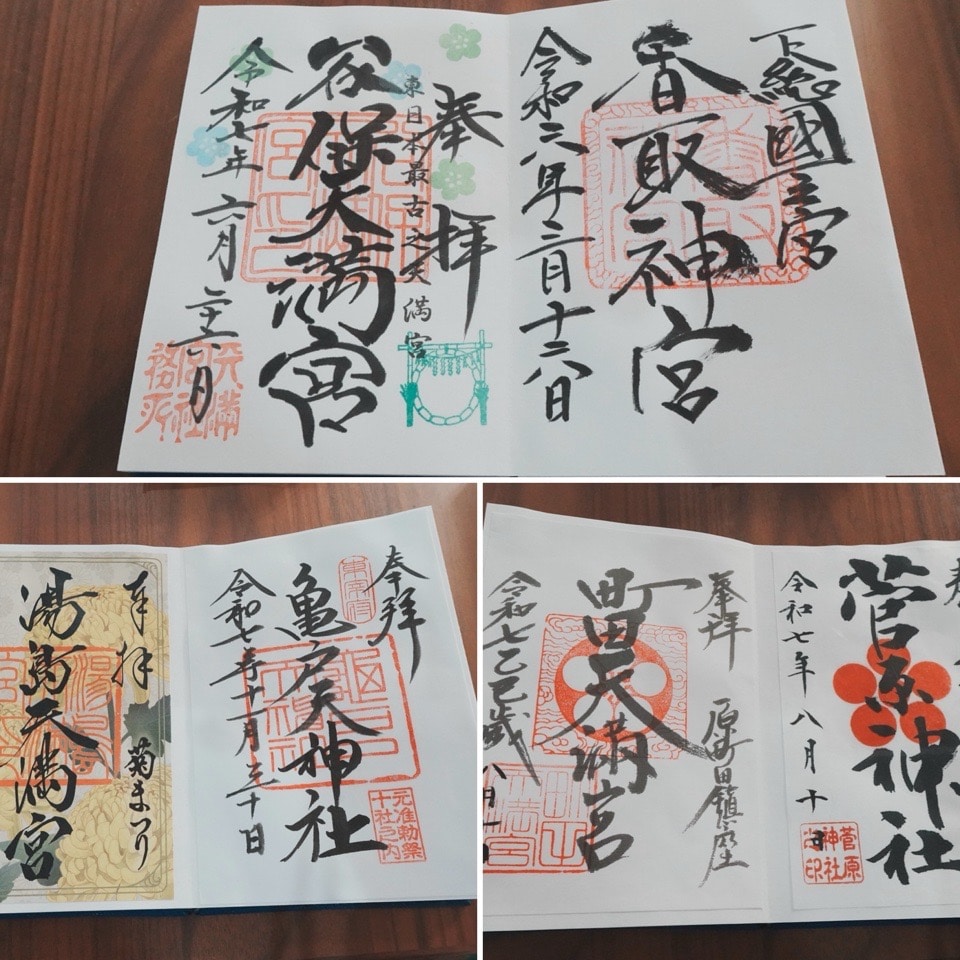 下総國一之宮
香取神宮
令和六年三月十六日
奉拝
東日本最古之天満宮
谷保天満宮
令和七年六月二十六日
天満宮社務所
奉拝
亀戸天神社
令和七年十一月三十日
東宰府
元准勅祭十社之内
奉拝
菊まつり
湯島天満宮
菅原神社
令和七年八月十日
菅原神社之印
奉拝
原町田鎮座
町田天満宮
令和七乙巳歳